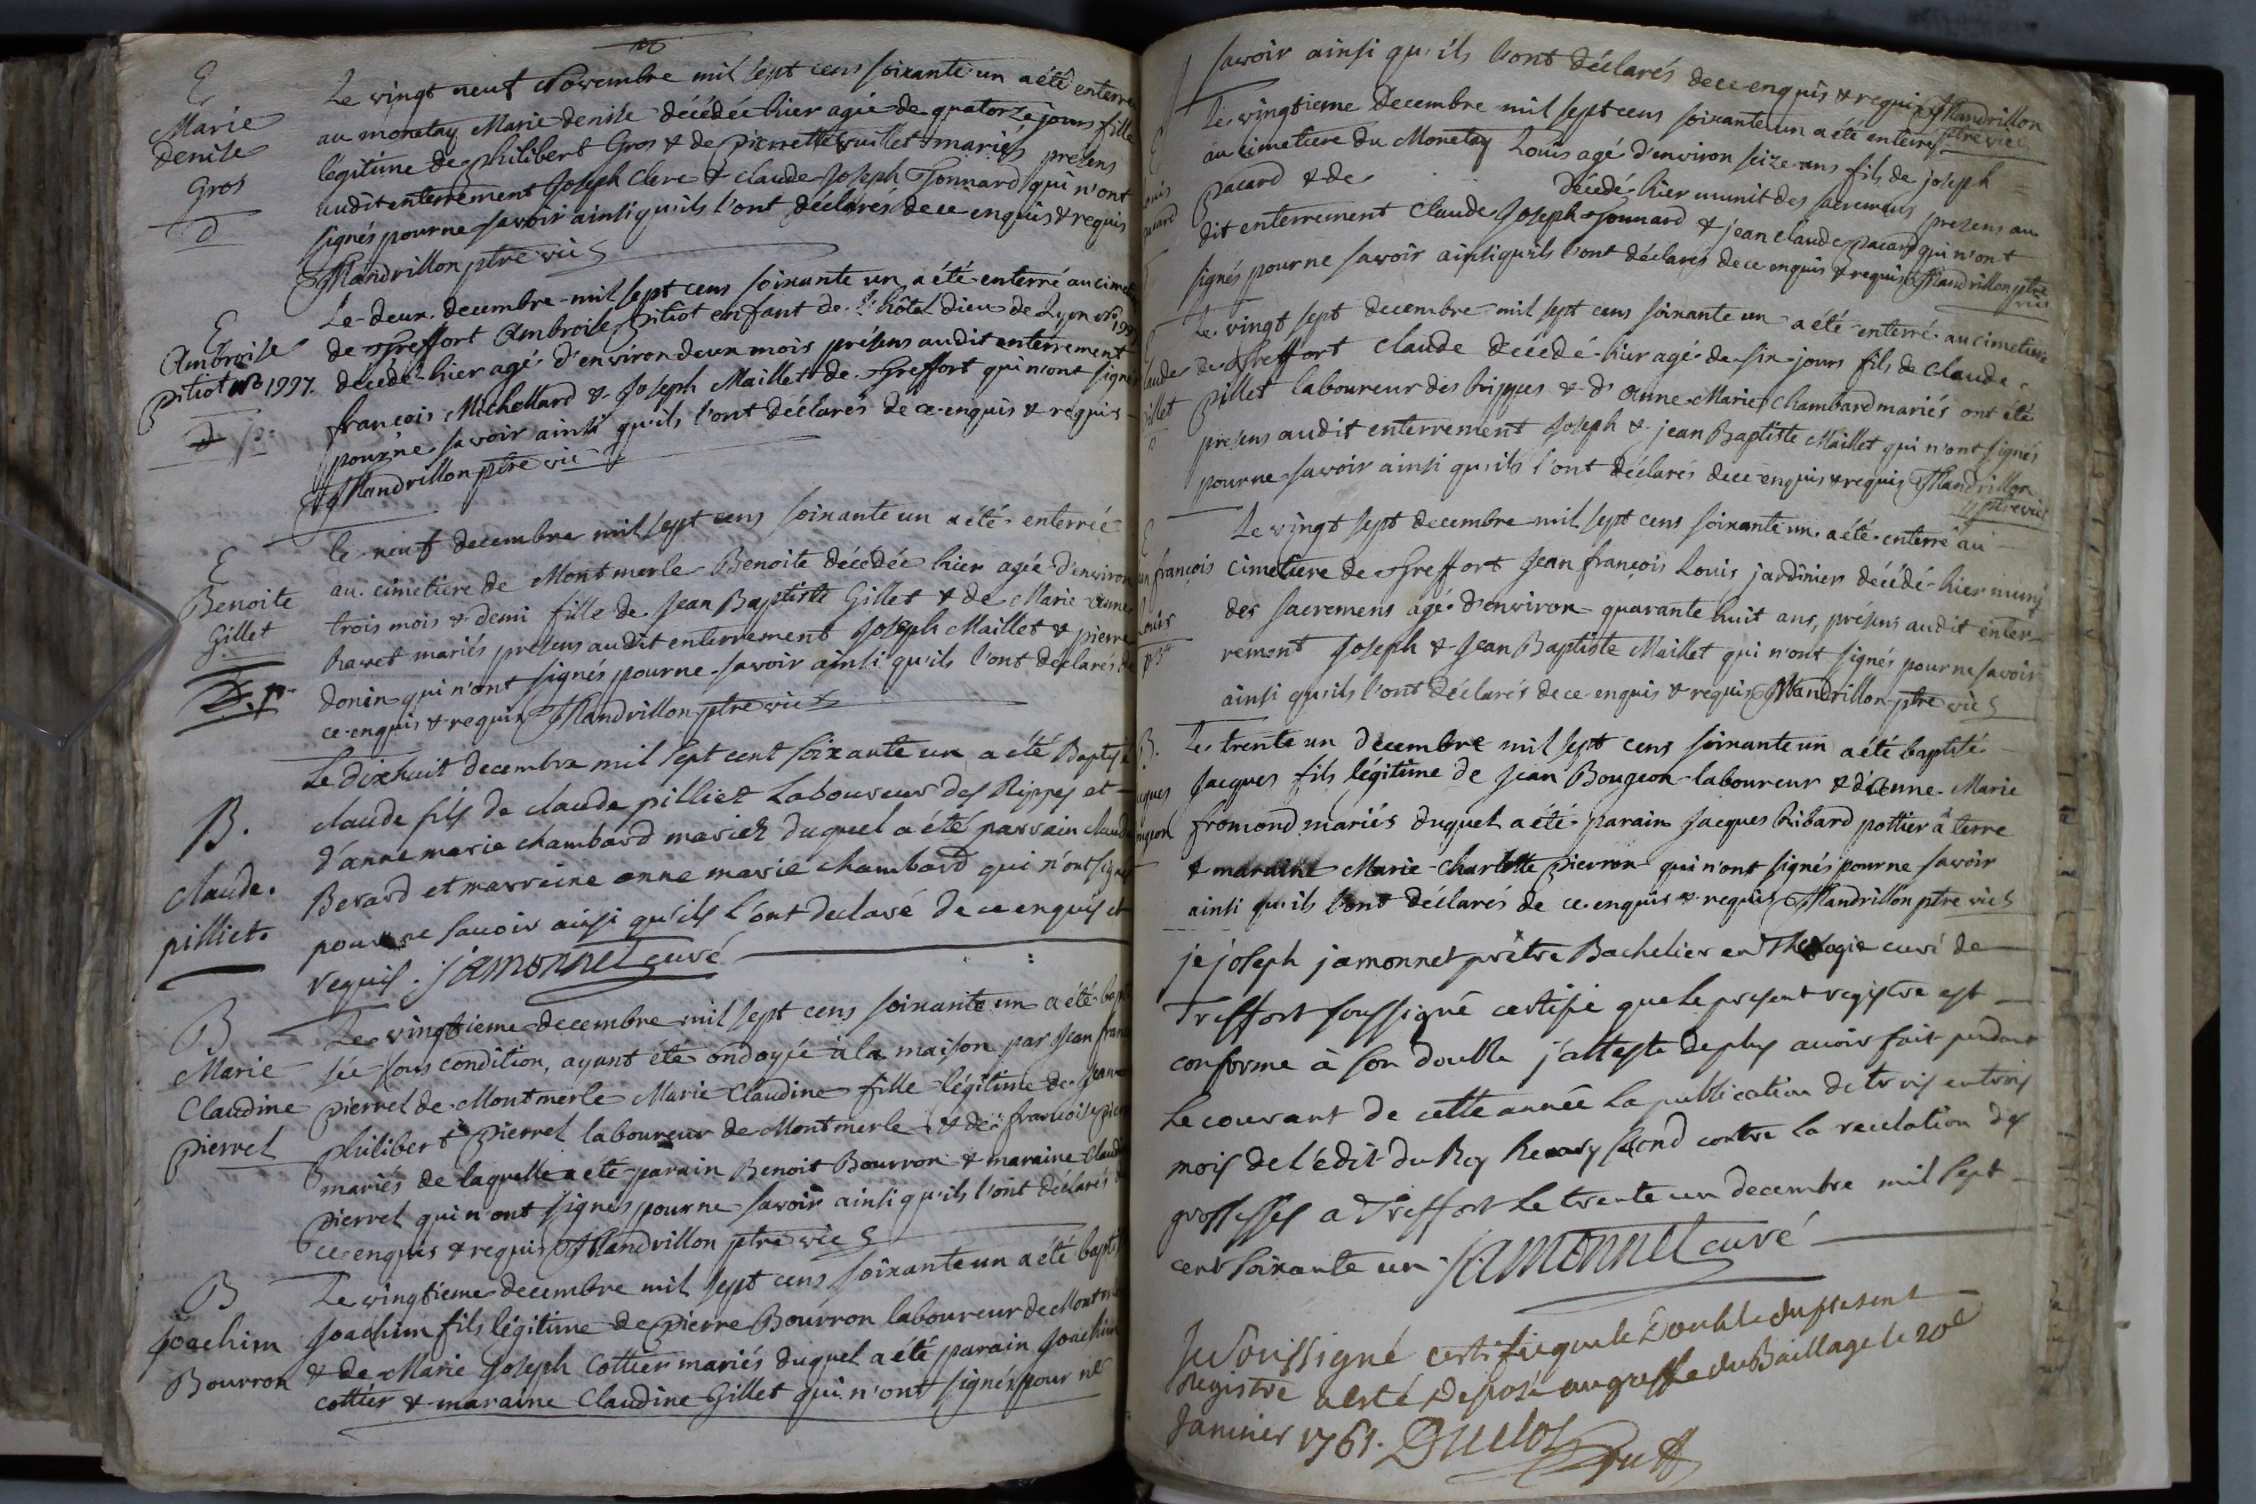 E
Marie
denise
Gros
d
Le vingt neuf Novembre mil sept cens soixante un a été enterrée
au monetay Marie denise décédée hier agée de quatorze jours fille
légitime de philibert Gros & de pierrette vuillet mariés presens
audit enterrement Joseph Clerc & claude Joseph Tonnard qui n'ont
signés pour ne savoir ainsi qu'ils l'ont déclarés de ce enquis & requis
Mandrillon ptre vic
E
Ambroise
pitiot no 1997.
Le deux decembre mil sept cens soixante un a été enterré au cimet
de Treffort Ambroise pitiot enfant de l'hôtel dieu de Lyon no 1997
decedé hier agé d'environ deux mois présens audit enterrement
françois Michollard & Joseph Maillet de Treffort qui n'ont signés
pour ne savoir ainsi qu'ils l'ont déclarés de ce enquis & requis
Mandrillon ptre vic
E
Benoite
Gillet
Le neuf decembre mil sept cens soixante un a été enterrée
au cimetiere de Montmerle Benoite décédée hier agée d'environ
trois mois & demi fille de Jean Baptiste Gillet & de Marie Anne
Ravet mariés presens audit enterrement Joseph Maillet & pierre
donin qui n'ont signés pour ne savoir ainsi qu'ils l'ont déclarés de
ce enquis & requis Mandrillon ptre vic
B.
claude.
pilliet.
Le dixhuit decembre mil sept cent soixante un a été Baptisé
claude fils de claude pilliet Laboureur des Rippes et
d'anne marie chambard mariez duquel a été parrain claude
Berard et marreine anne marie chambard qui n'ont signé
pour ne savoir ainsi qu'ils l'ont declaré de ce enquis et
requis. jamonnet curé
B
Marie
Claudine
pierrel
Le vingtieme decembre mil sept cens soixante un a été bap
sée sous condition, ayant été ondoyée à la maison par Jean franc
pierrel de Montmerle Marie Claudine fille légitime de Jean
philibert pierrel laboureur de Montmerle & de françoise pier
mariés de laquelle a été parain Benoit Bourron & maraine Claudi
pierrel qui n'ont signés pour ne savoir ainsi qu'ils l'ont déclarés de
ce enquis & requis Mandrillon ptre vic
B
Joachim
Bourron
Le vingtieme decembre mil sept cens soixante un a été bapti
Joachim fils légitime de pierre Bourron laboureur de Montm
& de Marie Joseph Cottier mariés duquel a été parain Joachim
cottier & maraine Claudine Gillet qui n'ont signés pour ne
savoir ainsi qu'ils l'ont déclarés de ce enquis & requis Mandrillon
ptre vic
E
ouis
pacard
Le vingtieme Decembre mil sept cens soixante un a été enterré
au cimetiere du Monetay Louis agé d'environ seize ans fils de joseph
pacard & de décédé hier munit des sacremens presens au
dit enterrement Claude Joseph Tonnard & jean claude pacard qui n'ont
signés pour ne savoir ainsi qu'ils l'ont déclarés de ce enquis & requis Mandrillon ptre
vic
E
aude
pillet
Le vingt sept decembre mil sept cens soixante un a été enterré au cimetiere
de Treffort Claude décédé hier agé de six jours fils de Claude
pillet laboureur des Rippes & d'Anne Marie Chambard mariés ont été
presens audit enterrement Joseph & jean Baptiste Maillet qui n'ont signés
pour ne savoir ainsi qu'ils l'ont déclarés de ce enquis & requis Mandrillon
ptre vic
E
an françois
Louis
Le vingt sept decembre mil sept cens soixante un a été enterré au
cimetiere de Treffort Jean françois Louis jardinier décédé hier muny
des sacremens agé d'environ quarante huit ans, présens audit enter
rement Joseph & Jean Baptiste Maillet qui n'ont signés pour ne savoir
ainsi qu'ils l'ont déclarés de ce enquis & requis Mandrillon ptre vic
B.
acques
ougeon
Le trente un decembre mil sept cens soixante un a été baptisé
Jacques fils légitime de Jean Bougeon laboureur & d'Anne Marie
fromond mariés duquel a été parain Jacques Ribard pottier à terre
& maraine Marie Charlotte pierron qui n'ont signés pour ne savoir
ainsi qu'ils l'ont déclarés de ce enquis & requis Mandrillon ptre vic
je joseph jamonnet prêtre Bachelier en Theologie curé de
Treffort soussigné certifie que le present registre est
conforme à son double j'atteste de plus avoir fait pendant
Le courant de cette année La publication de trois en trois
mois de l'édit du Roy Henry second contre La recelation des
grossesses a Treffort Le trente un decembre mil sept
cent soixante un jamonnet curé
Je Soussigné certifie que le Double du present
Registre a esté Deposé au greffe du Baillage le 20e
Janvier 1761. Duclos